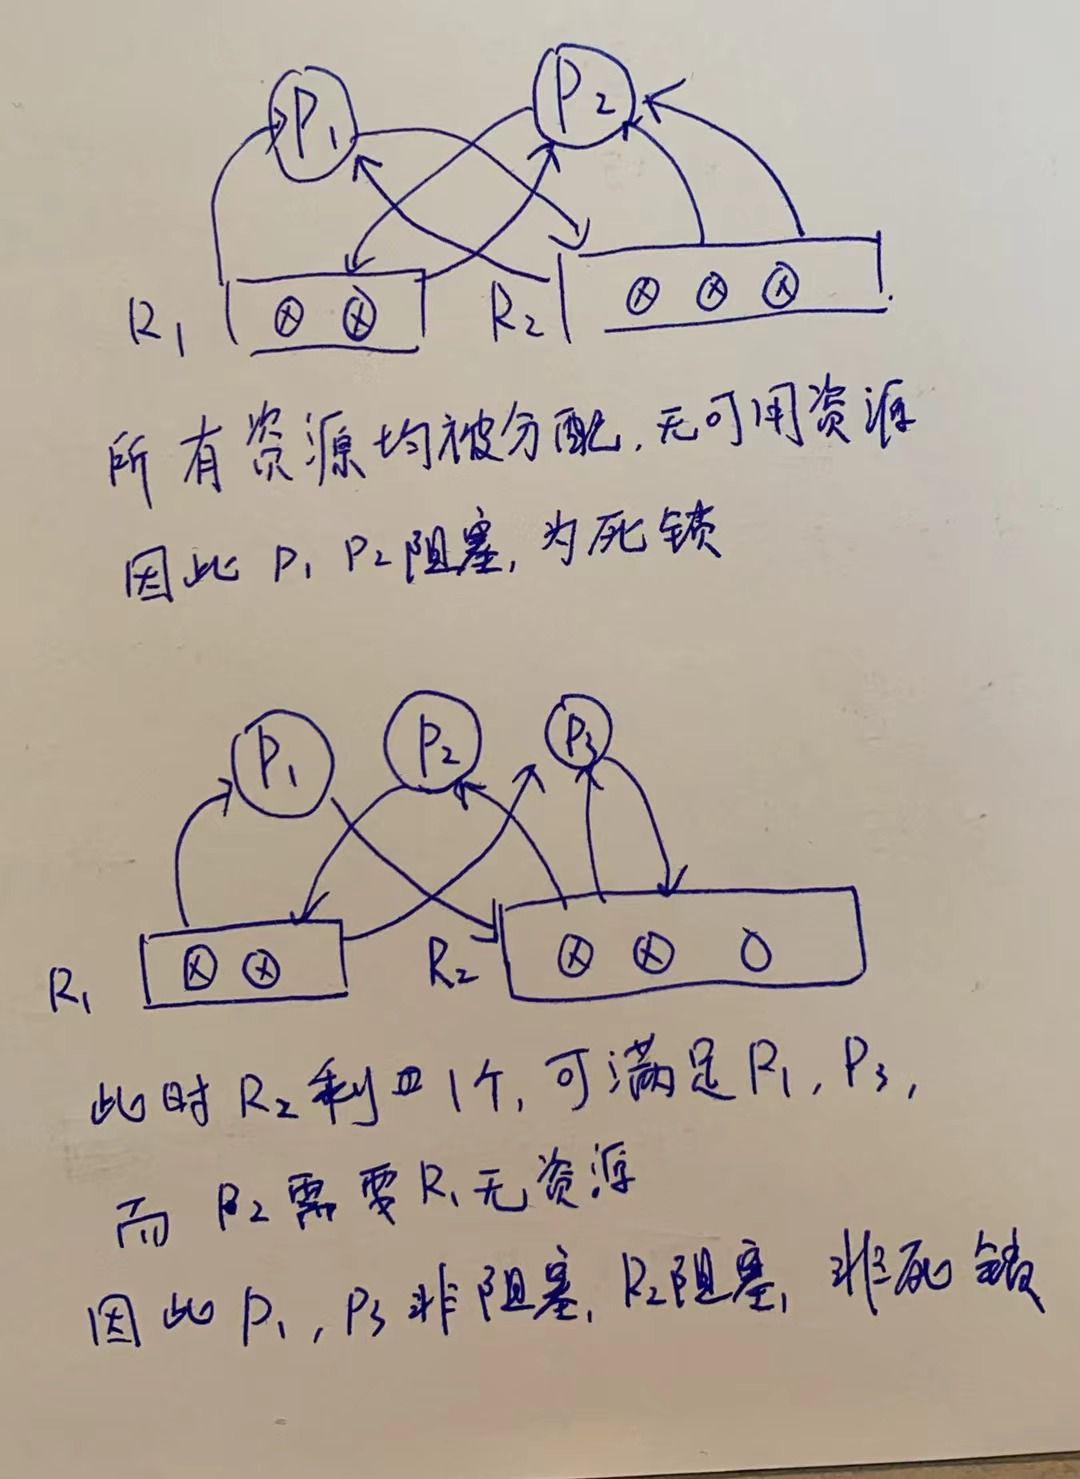 P1 P2
R1 R2
所有资源均被分配,无可用资源
因此 P1 P2阻塞,为死锁
P1 P2 P3
R1 R2
此时 R2 剩 1个,可满足P1,P3,
而 P2需要R1无资源
因此 P1,P3非阻塞,P2阻塞,非死锁